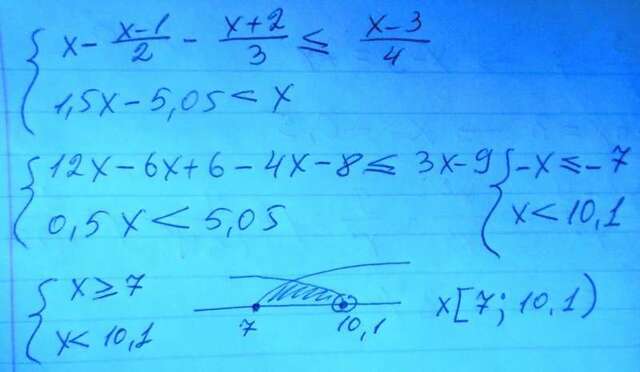 x - (x-1)/2 - (x+2)/3 ≤ (x-3)/4
1,5x - 5,05 < x
12x - 6x + 6 - 4x - 8 ≤ 3x - 9
0,5x < 5,05
-x ≤ -7
x < 10,1
x ≥ 7
x < 10,1
7 10,1
x[7; 10,1)